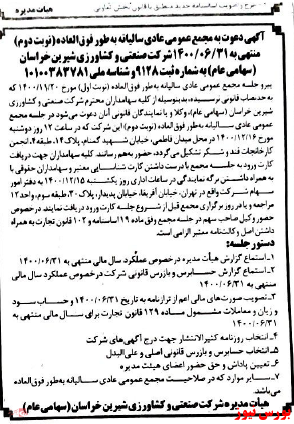 هیأت مدیره
آگهی دعوت به مجمع عمومی عادی سالیانه به طور فوق العاده (نوبت دوم)
منتهی به ۱۴۰۰/۰۶/۳۱ شرکت صنعتی و کشاورزی شیرین خراسان
(سهامی عام) به شماره ثبت ۹۱۲۸ و شناسه ملی ۱۰۱۰۰۳۸۳۷۸۱
پیرو جلسه مجمع عمومی عادی سالیانه به طور فوق العاده (نوبت اول) مورخ ۱۴۰۰/۱۱/۲۰ که
به حد نصاب قانونی نرسیده، بدینوسیله از کلیه سهامداران محترم شرکت صنعتی و کشاورزی
شیرین خراسان (سهامی عام)، وکلا و یا نمایندگان قانونی آنان دعوت می شود در جلسه مجمع
عمومی عادی سالیانه به طور فوق العاده (نوبت دوم) این شرکت که در ساعت ۱۲ روز دوشنبه
۱۴۰۰/۱۲/۱۶ در محل میدان فاطمی، خیابان شهید گمنام، پلاک ۱۴، طبقه ۴، انجمن
کارخانجات قند و شکر تشکیل می گردد، حضور بهم رسانند. کلیه سهامداران جهت دریافت
کارت ورود به جلسه مجمع با در دست داشتن کارت شناسایی معتبر و سهامداران حقوقی با
به همراه داشتن برگه نمایندگی در ساعات اداری روز یکشنبه ۱۴۰۰/۱۲/۱۵ به دفتر امور
سهام شرکت واقع در تهران، خیابان آفریقا، خیابان پدیدار، پلاک ۳۰، طبقه سوم، واحد ۱۲
مراجعه و یا در روز برگزاری مجمع قبل از شروع جلسه کارت ورود دریافت نمایند. در خصوص
حضور وکیل صاحب سهم در جلسه مجمع وفق ماده ۱۹ اساسنامه و ۱۰۲ قانون تجارت به همراه
داشتن اصل وکالتنامه معتبر الزامی است.
دستور جلسه:
۱ـ استماع گزارش هیأت مدیره در خصوص عملکرد سال مالی منتهی به ۱۴۰۰/۰۶/۳۱
۲ـ استماع گزارش حسابرس و بازرس قانونی شرکت در خصوص عملکرد سال مالی
منتهی به ۱۴۰۰/۰۶/۳۱
۳ـ تصویب صورت های مالی اعم از ترازنامه به تاریخ ۱۴۰۰/۰۶/۳۱ و حساب سود
و زیان و معاملات مشمول ماده ۱۲۹ قانون تجارت برای سال مالی منتهی به
۱۴۰۰/۰۶/۳۱
۴ـ انتخاب روزنامه کثیرالانتشار جهت درج آگهی های شرکت
۵ـ انتخاب حسابرس و بازرس قانونی اصلی و علی البدل
۶ـ تعیین پاداش و حق حضور اعضای هیئت مدیره
۷ـ سایر موارد که در صلاحیت مجمع عمومی عادی سالیانه به طور فوق العاده
می باشد.
هیأت مدیره شرکت صنعتی و کشاورزی شیرین خراسان (سهامی عام)
بورس نیوز